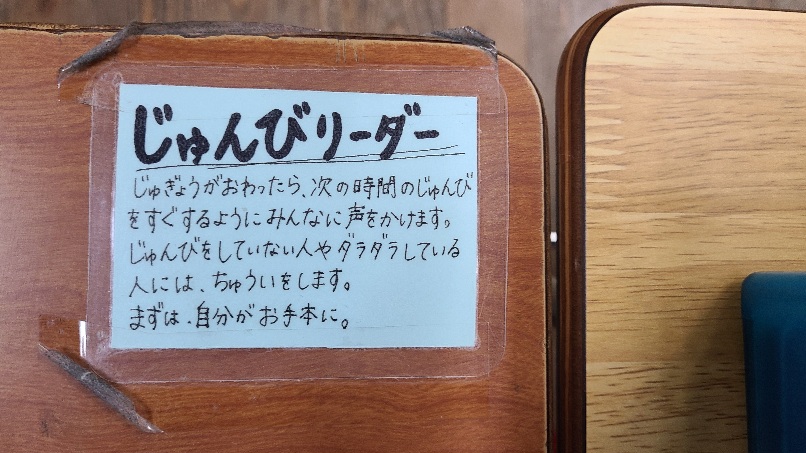 じゅんびリーダー
じゅぎょうがおわったら、次の時間のじゅんび
をすぐするようにみんなに声をかけます。
じゅんびをしていない人やダラダラしている
人には、ちゅういをします。
まずは、自分がお手本に。